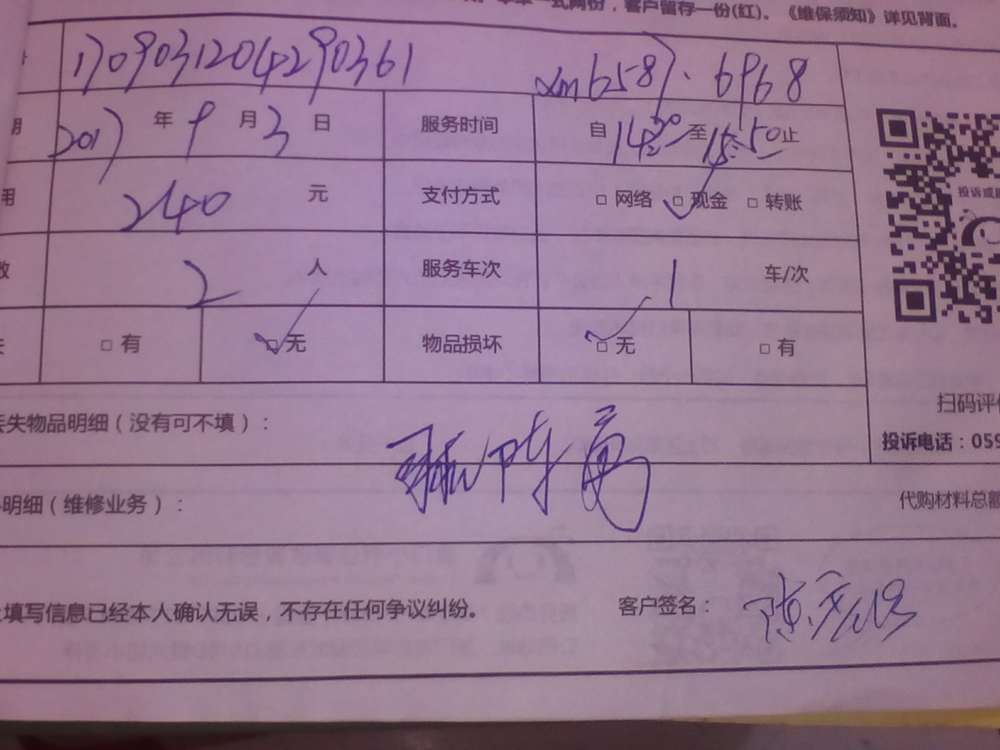 单一式两份，客户留存一份(红)。《维保须知》详见背面。
1709031204290361 xm6587. 6968
期 2017 年 9 月 3 日 服务时间 自 14:20 至 15:50 止
用 240 元 支付方式 □ 网络 □ 现金 □ 转账
投诉或
数 2 人 服务车次 1 车/次
失 □ 有 □ 无 物品损坏 □ 无 □ 有
扫码评价
丢失物品明细（没有可不填）：
投诉电话：059
明细（维修业务）：
代购材料总额
上填写信息已经本人确认无误，不存在任何争议纠纷。 客户签名：